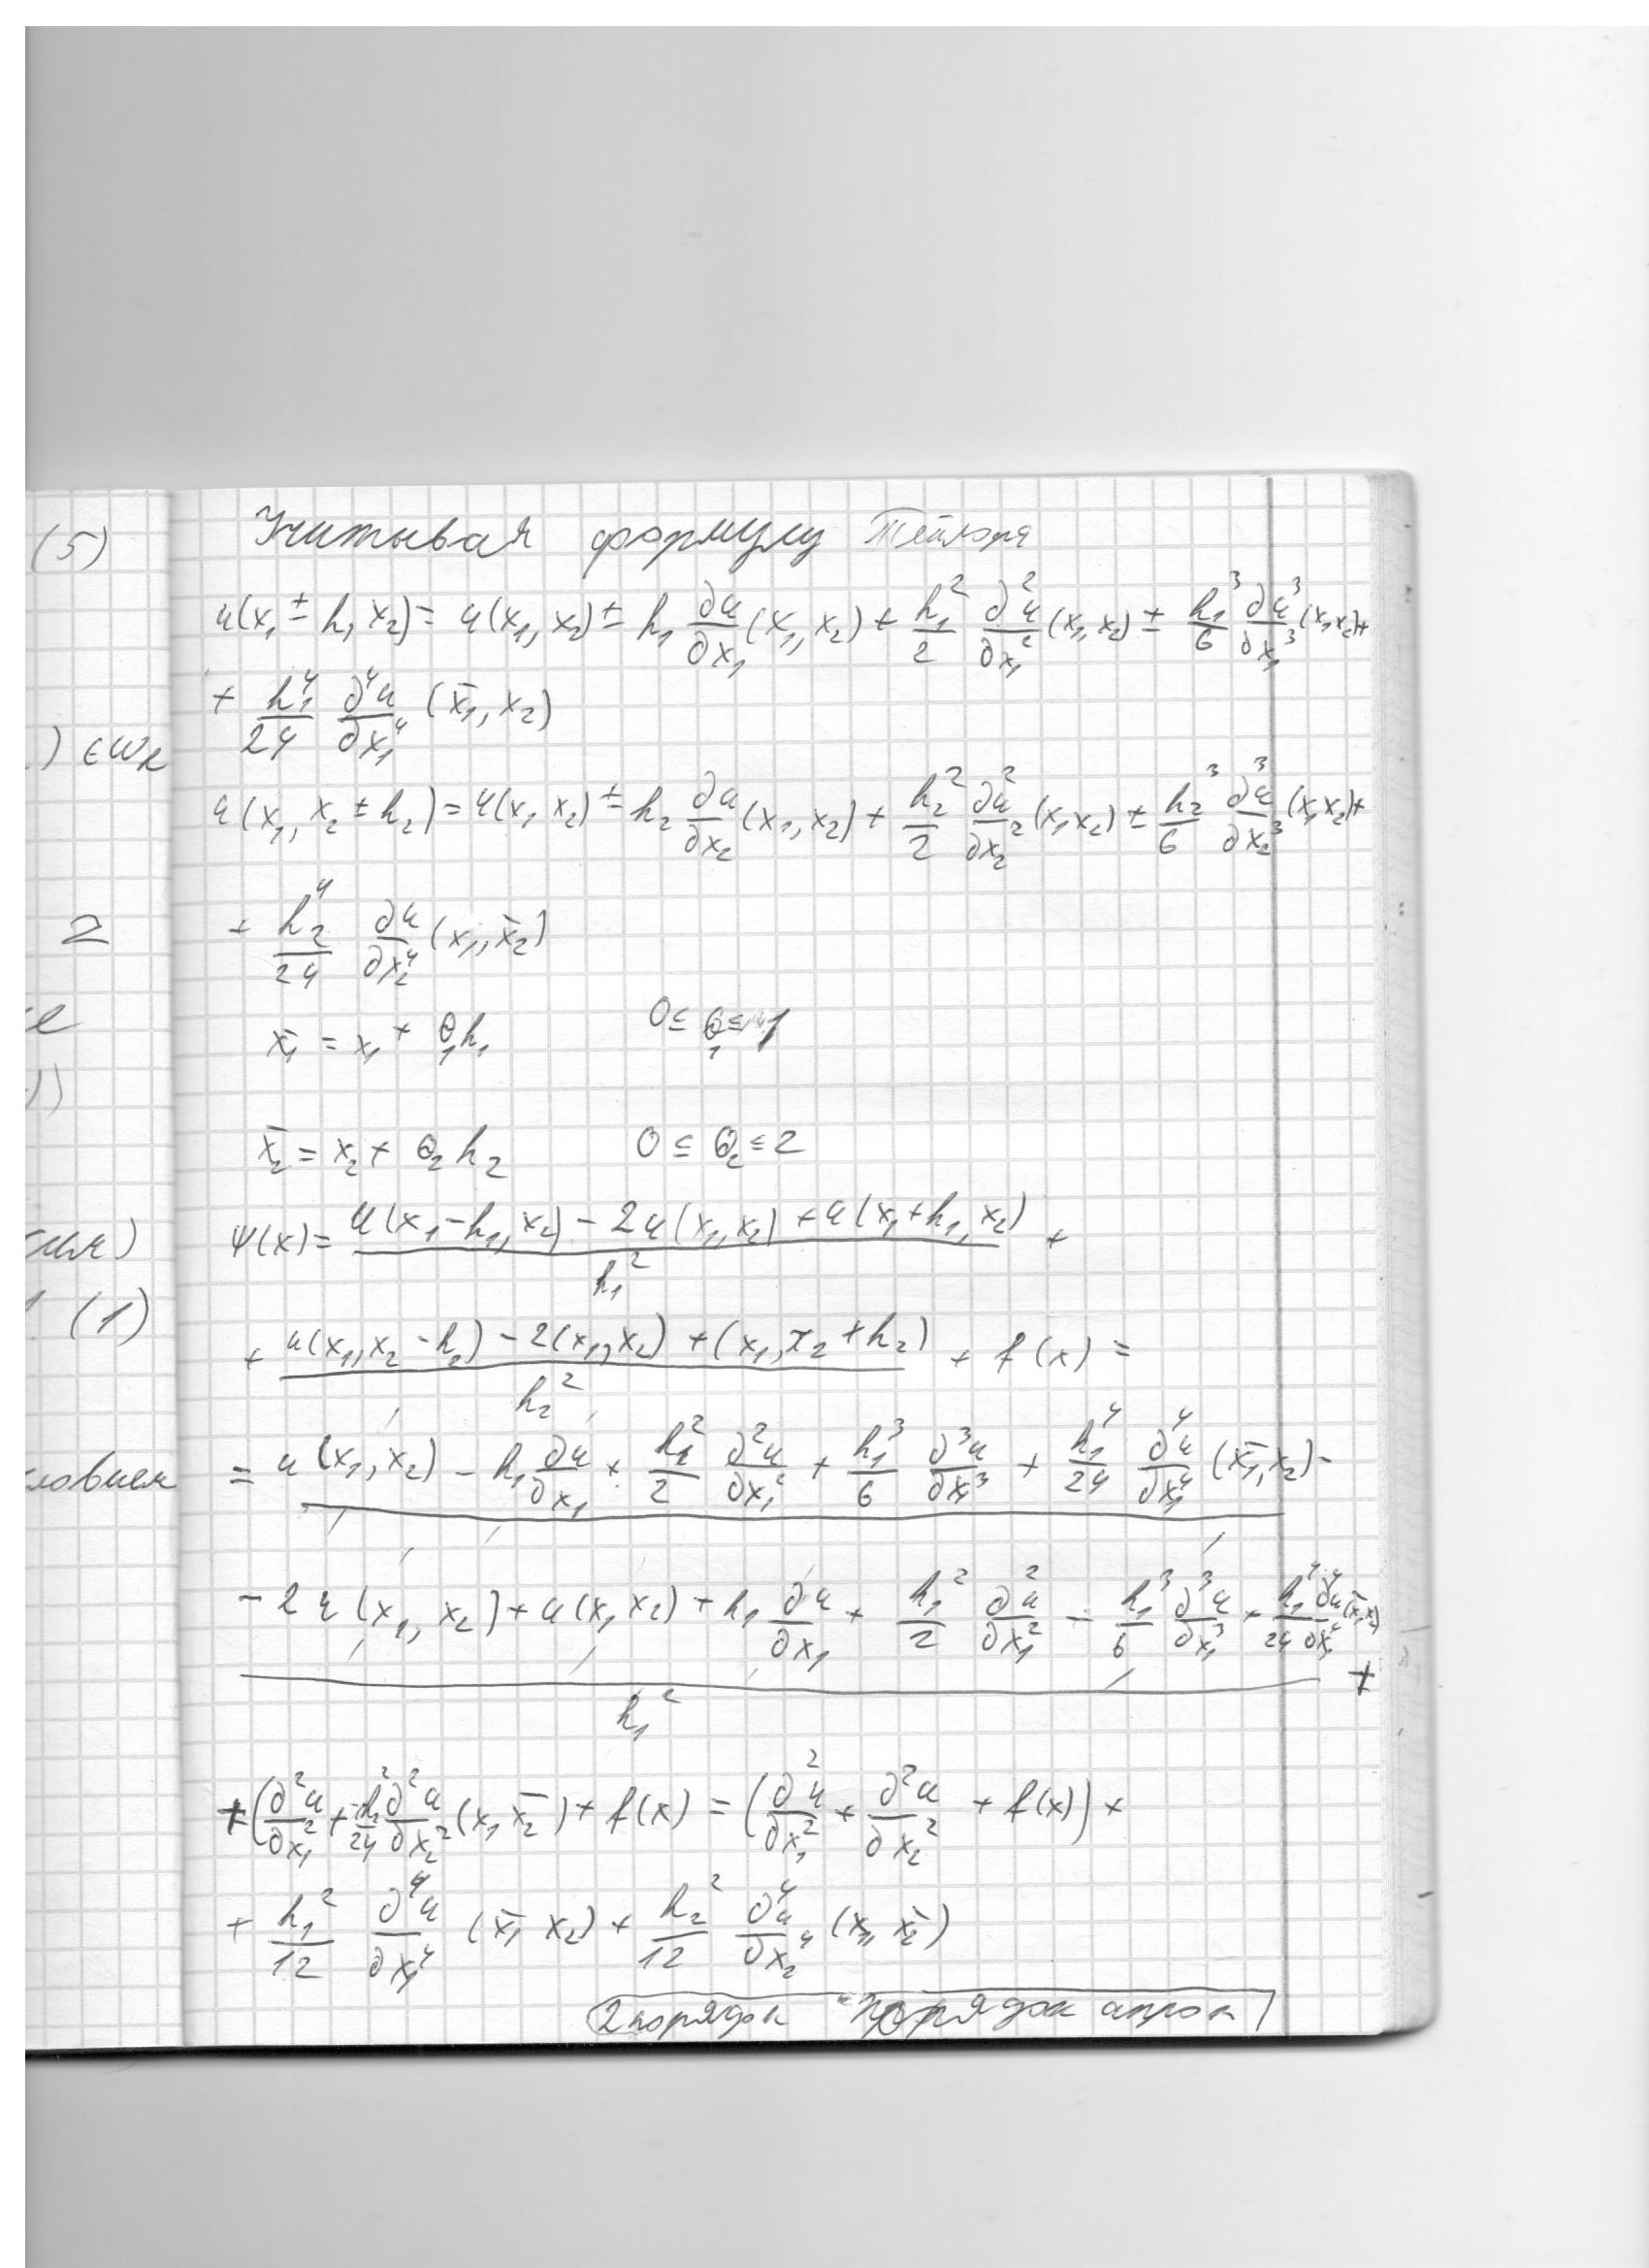 (5)
) ∈ ω_h
2
е
))
(1)
ловием
Учитывая формулу Тейлора
u(x₁ ± h₁ x₂) = u(x₁, x₂) ± h₁ ∂u/∂x₁ (x₁, x₂) + h₁²/2 ∂²u/∂x₁² (x₁, x₂) ± h₁³/6 ∂u³/∂x₁³ (x₁ x₂) +
+ h₁⁴/24 ∂⁴u/∂x₁⁴ (x̄₁, x₂)
u(x₁, x₂ ± h₂) = u(x₁ x₂) ± h₂ ∂u/∂x₂ (x₁, x₂) + h₂²/2 ∂u²/∂x₂² (x₁ x₂) ± h₂³/6 ∂³u/∂x₂³ (x₁ x₂) +
+ h₂⁴/24 ∂u/∂x₂⁴ (x₁, x̄₂)
x̄₁ = x₁ + θ₁h₁ 0 ≤ θ₁ ≤ 1
x̄₂ = x₂ + θ₂ h₂ 0 ≤ θ₂ ≤ 2
Ψ(x) = u(x₁ - h₁, x₂) - 2u(x₁, x₂) + u(x₁ + h₁, x₂) / h₁² +
+ u(x₁, x₂ - h₂) - 2(x₁, x₂) + (x₁, x₂ + h₂) / h₂² + f(x) =
= u(x₁, x₂) - h₁ ∂u/∂x₁ + h₁²/2 ∂²u/∂x₁² + h₁³/6 ∂³u/∂x₁³ + h₁⁴/24 ∂⁴u/∂x₁⁴ (x̄₁, x₂) -
- 2u(x₁, x₂) + u(x₁ x₂) + h₁ ∂u/∂x₁ + h₁²/2 ∂²u/∂x₁² - h₁³/6 ∂³u/∂x₁³ + h₁⁴/24 ∂⁴u/∂x₁⁴ (x̄₁ x₂) / h₁² +
+ (∂²u/∂x₁² + h₂²/24 ∂²u/∂x₂² (x₁ x̄₂) + f(x) = (∂²u/∂x₁² + ∂²u/∂x₂² + f(x)) +
+ h₁²/12 ∂⁴u/∂x₁⁴ (x̄₁ x₂) + h₂²/12 ∂⁴u/∂x₂⁴ (x₁, x̄₂)
2 порядок - порядок апрок